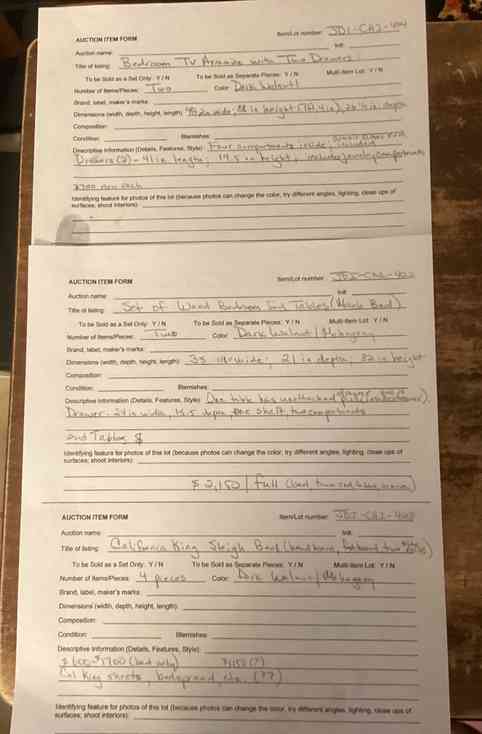 AUCTION ITEM FORM Item/Lot number: JD1-CA2-404
Auction name: Init:
Title of listing: Bedroom TV Armoire with Two Drawers
To be Sold as a Set Only: Y / N To be Sold as Separate Pieces: Y / N Multi-item Lot: Y / N
Number of Items/Pieces: Two Color: Dark Walnut
Brand, label, maker's marks:
Dimensions (width, depth, height, length):
Composition:
Condition: Blemishes:
Descriptive information (Details, Features, Style): Four compartments inside; included
Drawers (2) - 41 in length; 14.5 in height; includes jewelry compartments
Identifying feature for photos of this lot (because photos can change the color, try different angles, lighting, close ups of
surfaces; shoot interiors):
AUCTION ITEM FORM Item/Lot number:
Auction name: Init:
Title of listing: Set of Wood Bedroom End Tables
To be Sold as a Set Only: Y / N To be Sold as Separate Pieces: Y / N Multi-item Lot: Y / N
Number of Items/Pieces: Two Color: Dark Walnut / Mahogany
Brand, label, maker's marks:
Dimensions (width, depth, height, length): wide; 21 in depth; 32 in height
Composition:
Condition: Blemishes:
Descriptive information (Details, Features, Style): One table has
Drawer - 24 in width, depth, one shelf, two compartments
End Tables $
Identifying feature for photos of this lot (because photos can change the color, try different angles, lighting, close ups of
surfaces; shoot interiors):
$2,150 / full (bed, two end tables,
AUCTION ITEM FORM Item/Lot number:
Auction name: Init:
Title of listing: California King Sleigh Bed (headboard, footboard, two
To be Sold as a Set Only: Y / N To be Sold as Separate Pieces: Y / N Multi-item Lot: Y / N
Number of Items/Pieces: 4 pieces Color: Dark Walnut / Mahogany
Brand, label, maker's marks:
Dimensions (width, depth, height, length):
Composition:
Condition: Blemishes:
Descriptive information (Details, Features, Style):
$600-$700 (bed only) $1150 (?)
Cal King sheets, bedspread, etc. (??)
Identifying feature for photos of this lot (because photos can change the color, try different angles, lighting, close ups of
surfaces; shoot interiors):